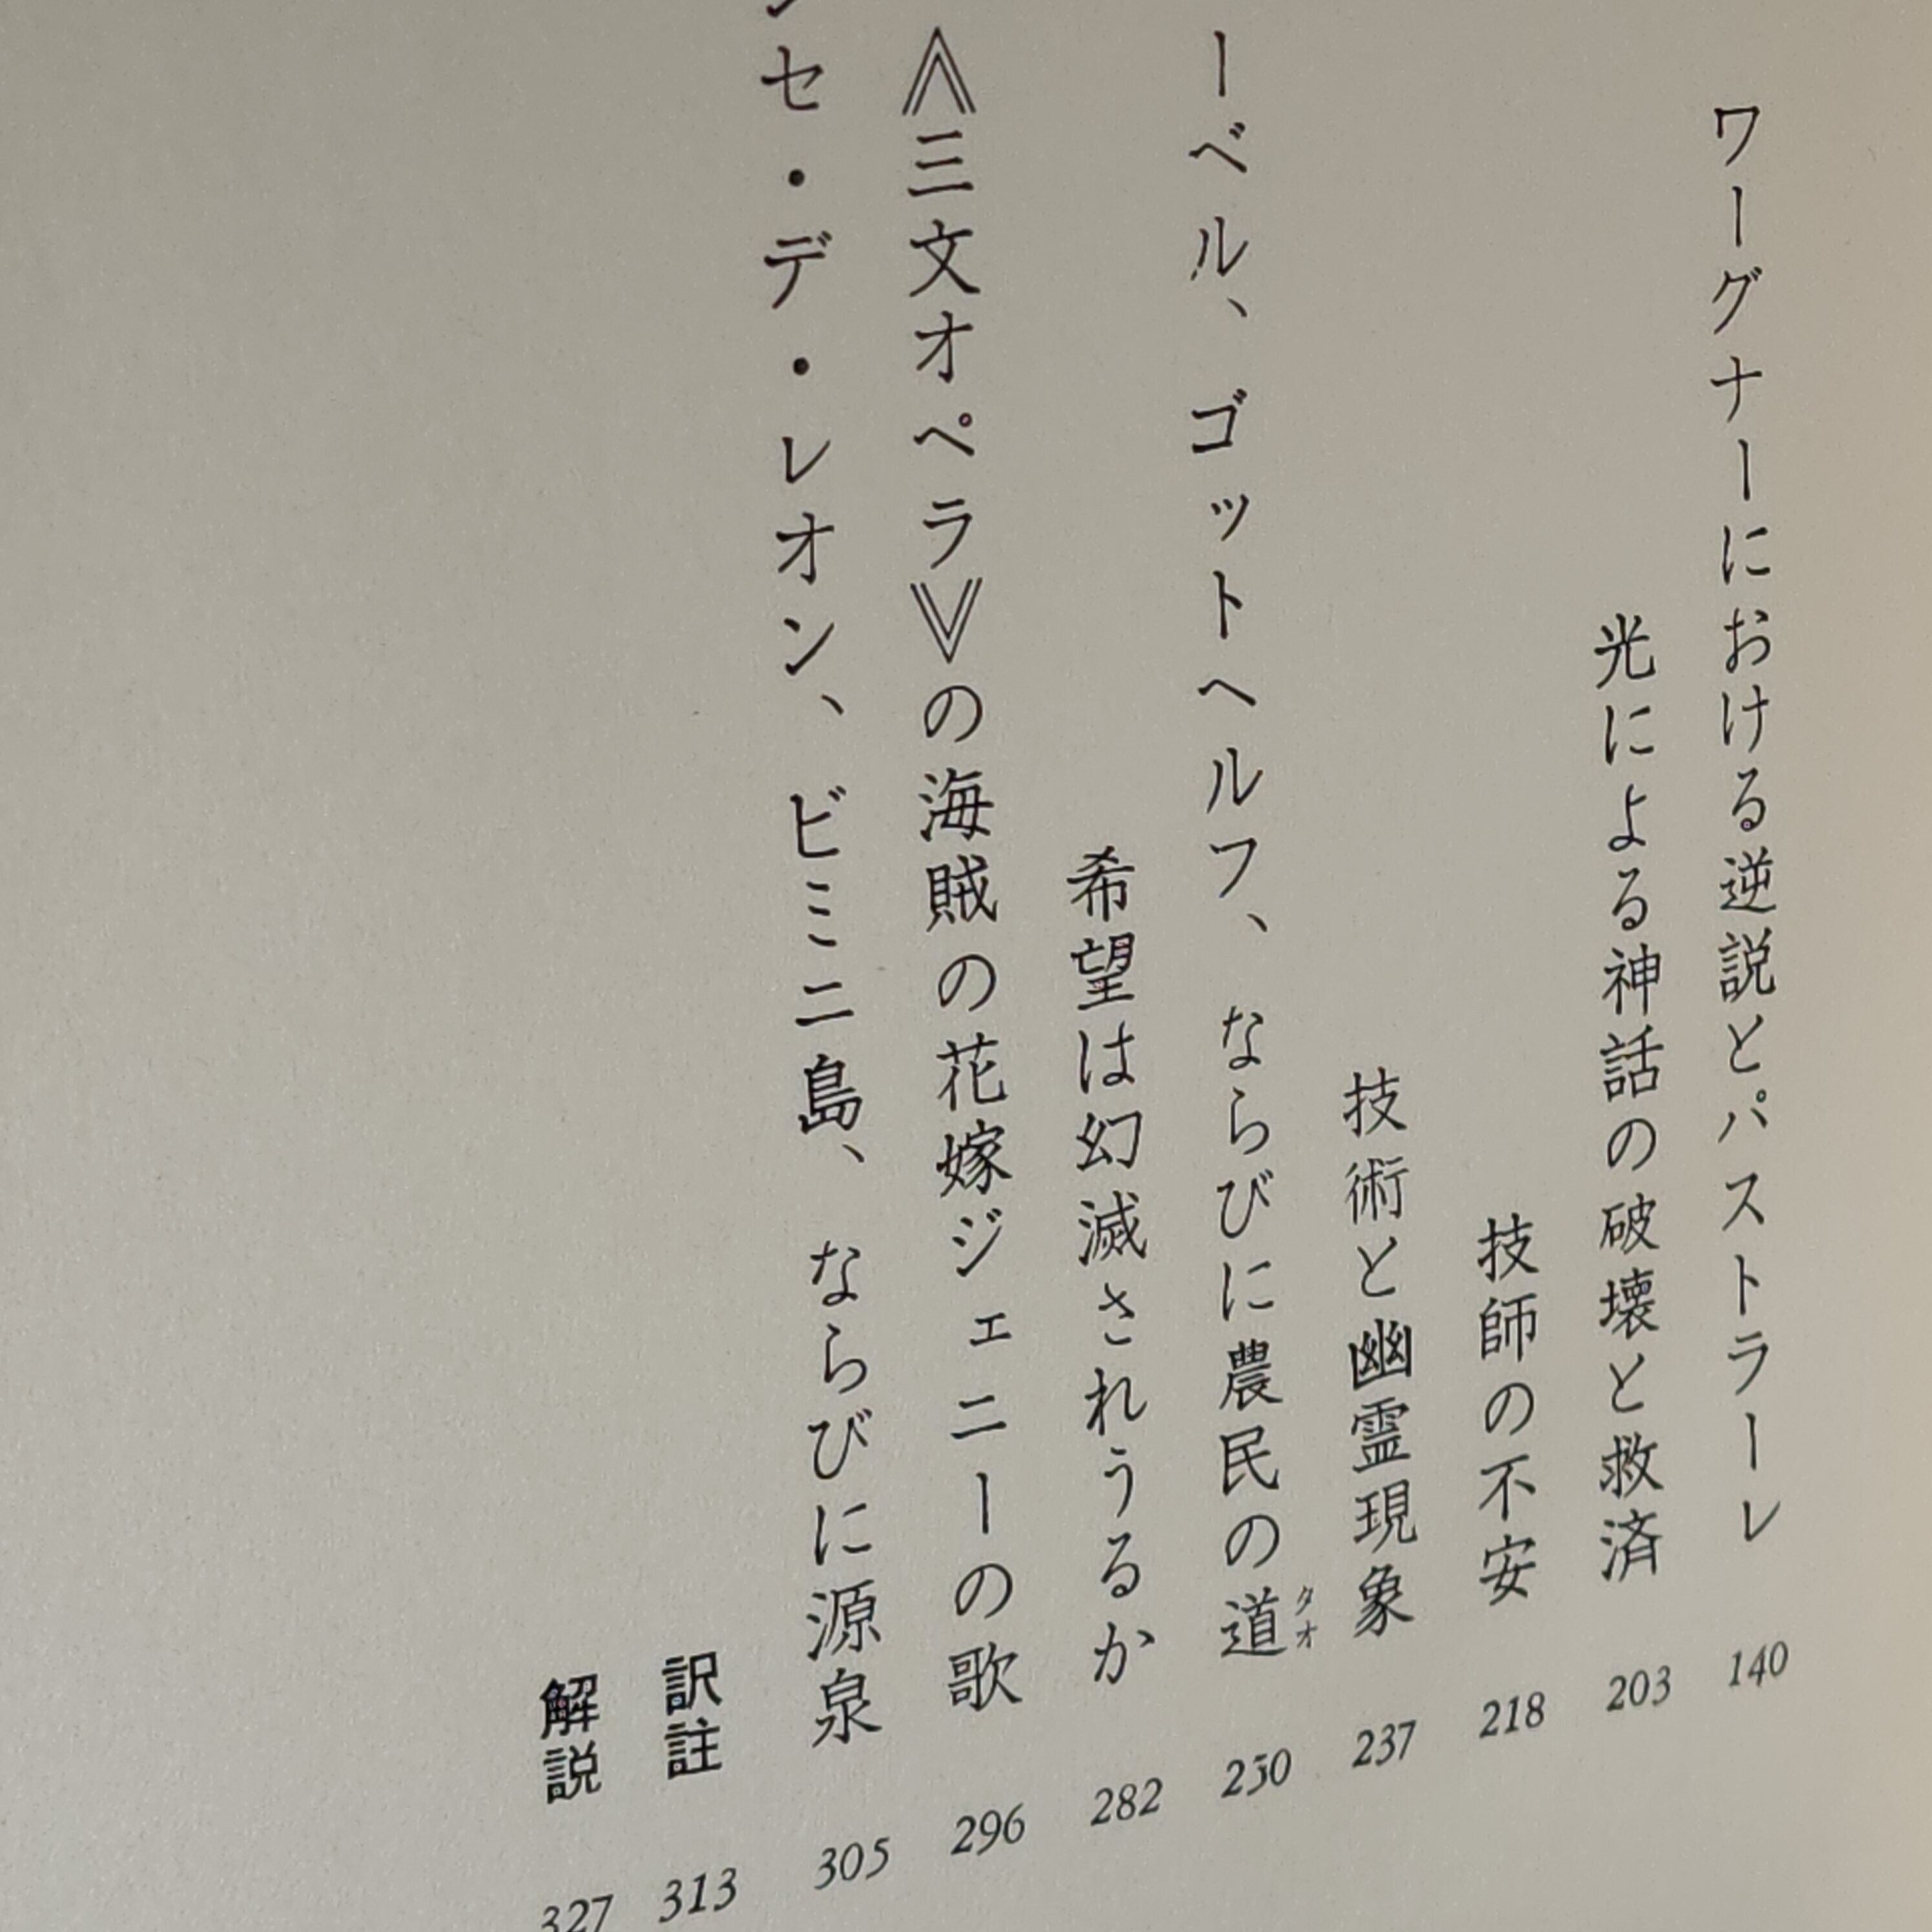 ワーグナーにおける逆説とパストラーレ 140
光による神話の破壊と救済 203
技師の不安 218
技術と幽霊現象 237
ーベル、ゴットヘルフ、ならびに農民の道 タオ 250
希望は幻滅されうるか 282
《三文オペラ》の海賊の花嫁ジェニーの歌 296
ンセ・デ・レオン、ビミニ島、ならびに源泉 305
訳註 313
解説 327